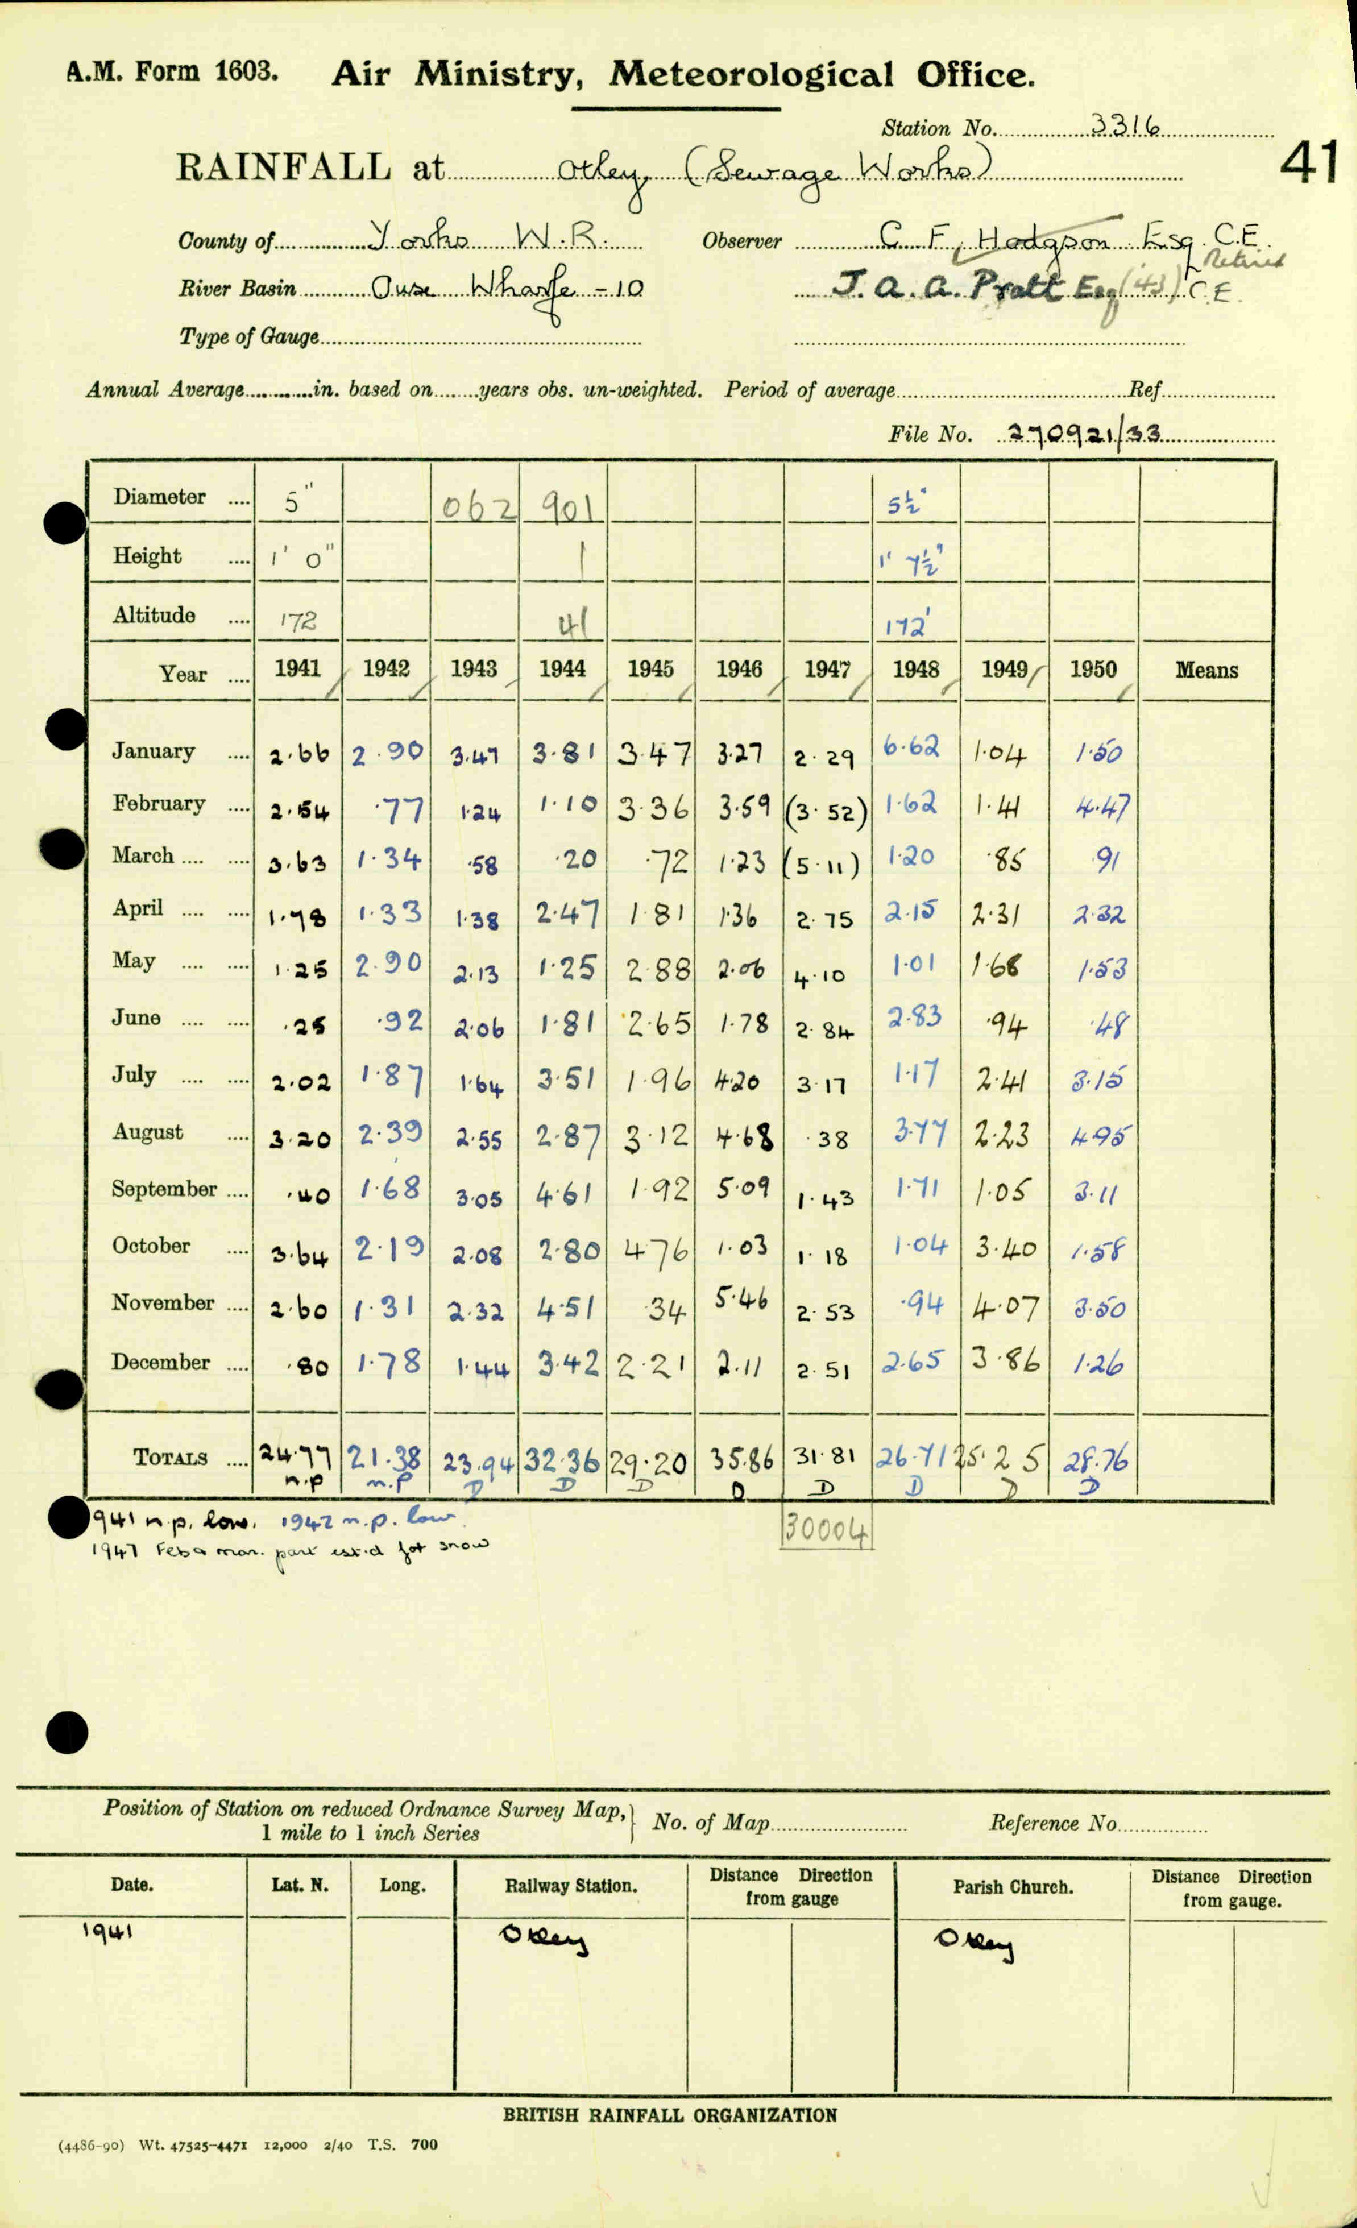 A.M. Form 1603. Air Ministry, Meteorological Office.
Station No. 3316
RAINFALL at Otley (Sewage Works) 41
County of Yorks W.R. Observer C. F. Hodgson Esq. C.E.
Retired
River Basin Ouse Wharfe - 10 J. A. A. Pratt Esq ('43) C.E.
Type of Gauge
Annual Average in. based on years obs. un-weighted. Period of average Ref
File No. 270921/33
Diameter .... 5" 062 901 5½"
Height .... 1' 0" 1 1' 7½"
Altitude .... 172 41 172'
Year .... 1941 1942 1943 1944 1945 1946 1947 1948 1949 1950 Means
January .... 2.66 2.90 3.47 3.81 3.47 3.27 2.29 6.62 1.04 1.50
February .... 2.54 .77 1.24 1.10 3.36 3.59 (3.52) 1.62 1.41 4.47
March .... .... 3.63 1.34 .58 .20 .72 1.23 (5.11) 1.20 .85 .91
April .... .... 1.78 1.33 1.38 2.47 1.81 1.36 2.75 2.15 2.31 2.32
May .... .... 1.25 2.90 2.13 1.25 2.88 2.06 4.10 1.01 1.68 1.53
June .... .... .25 .92 2.06 1.81 2.65 1.78 2.84 2.83 .94 .48
July .... .... 2.02 1.87 1.64 3.51 1.96 4.20 3.17 1.17 2.41 3.15
August .... 3.20 2.39 2.55 2.87 3.12 4.68 .38 3.77 2.23 4.95
September .... .40 1.68 3.05 4.61 1.92 5.09 1.43 1.71 1.05 3.11
October .... 3.64 2.19 2.08 2.80 4.76 1.03 1.18 1.04 3.40 1.58
November .... 2.60 1.31 2.32 4.51 .34 5.46 2.53 .94 4.07 3.50
December .... .80 1.78 1.44 3.42 2.21 2.11 2.51 2.65 3.86 1.26
TOTALS .... 24.77 21.38 23.94 32.36 29.20 35.86 31.81 26.71 25.25 28.76
n.p n.p D D D D D D D D
1941 n.p. low. 1942 n.p. low. 30004
1947 Feb & mar. part est.d for snow
Position of Station on reduced Ordnance Survey Map, No. of Map Reference No
1 mile to 1 inch Series
Date. Lat. N. Long. Railway Station. Distance Direction from gauge Parish Church. Distance Direction from gauge.
1941 Otley Otley
BRITISH RAINFALL ORGANIZATION
(4486-90) Wt. 47525-4471 12,000 2/40 T.S. 700